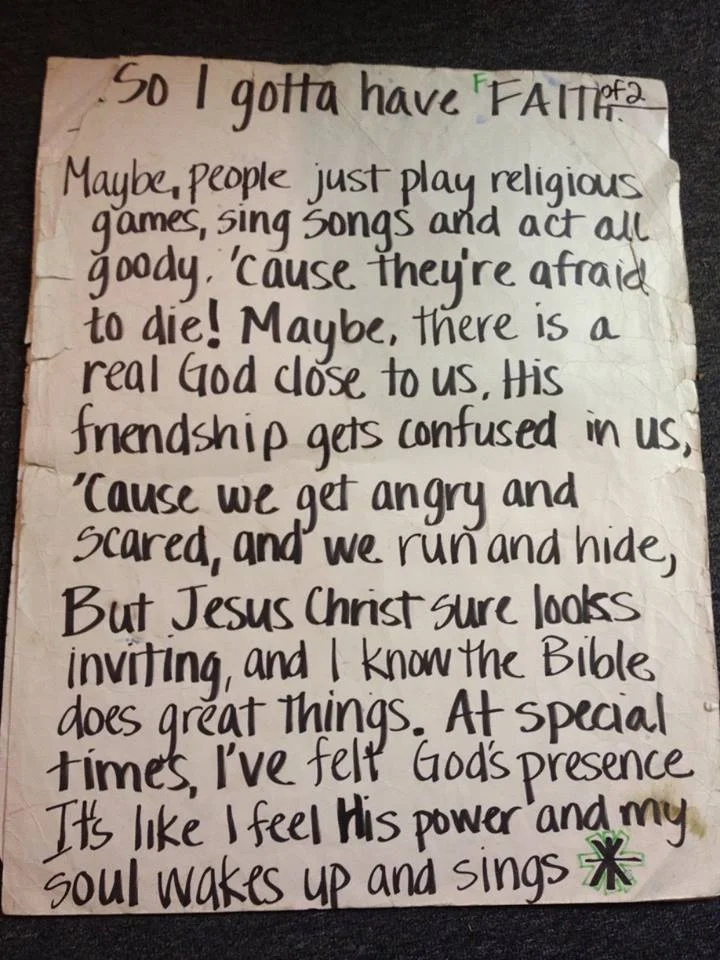 .So I gotta have F FAITH. of 2
Maybe, people just play religious
games, sing songs and act all
goody. 'cause they're afraid
to die! Maybe, there is a
real God close to us, His
friendship gets confused in us,
'Cause we get angry and
scared, and we run and hide,
But Jesus Christ sure looks
inviting, and I know the Bible
does great things. At special
times, I've felt God's presence
It's like I feel His power and my
soul wakes up and sings